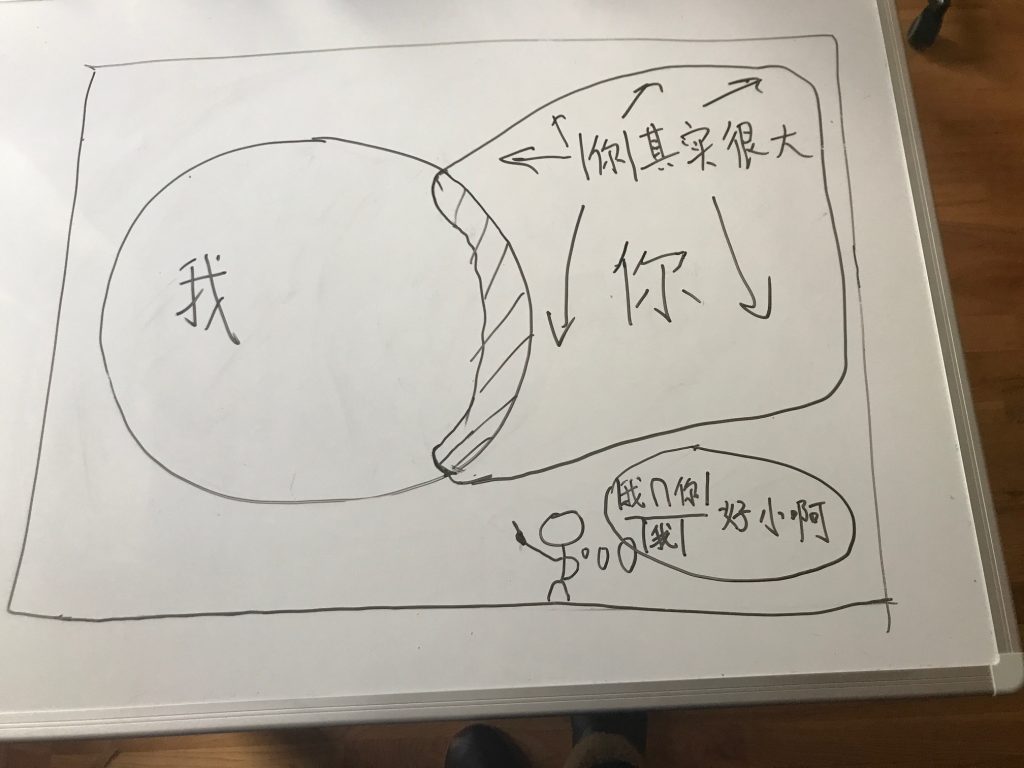 |你|其实很大
我
你
|我∩你|
|我|
好小啊